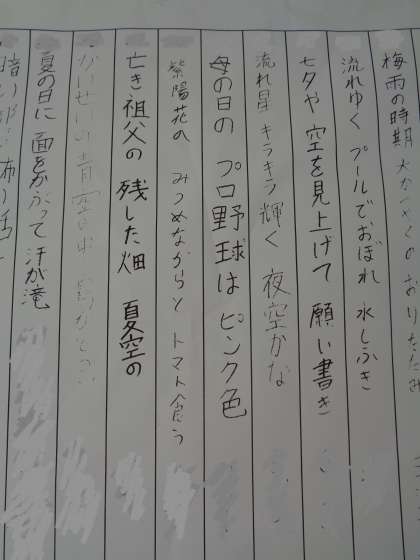 梅雨の時期
流れゆく プールで、おぼれ 水しぶき
七夕や 空を見上げて 願い書き
流れ星 キラキラ輝く 夜空かな
母の日の プロ野球は ピンク色
紫陽花の みつめながらと トマト食う
亡き祖父の 残した畑 夏空の
かいせいの青空
夏の日に 面をかぶって 汗が滝